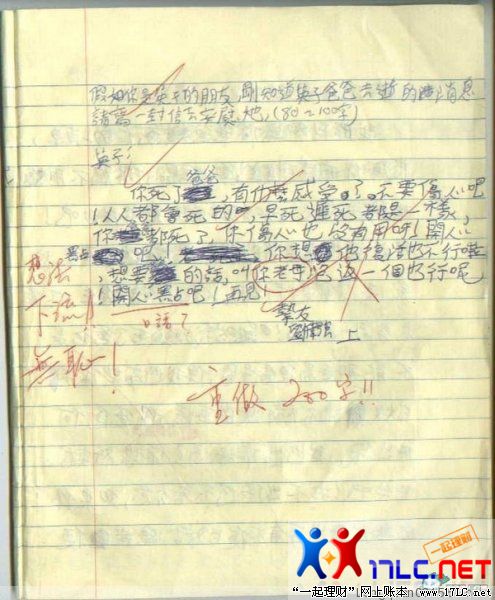 假如你是英子的朋友,剛知道英子爸爸去逝的消息
請寫一封信去安慰她,(80~100字)
英子:
爸爸
你死了,有什麼感受。了。不要傷心吧
!人人都會死的吧,早死遲死都是一樣,
你都死了,你傷心也沒有用呀!開心
點吧!你想他復活也不行啦
,想要的話,叫你老母 返一個也行呢
!開心點吧!再見!
摯友
上
想法
下流!!
無恥!
口語?
重做 200字!!
一起理财
17LC.NET
“一起理财”网上账本 www.17LC.net